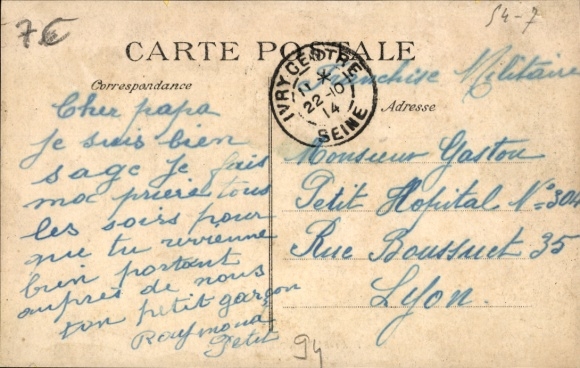 7€
54-7
CARTE POSTALE
Correspondance
Adresse
IVRY CENTRE
11 *
22-10
14
SEINE
Franchise Militaire
Cher papa
Je suis bien
sage je fais
ma prière tous
les soirs pour
que tu revienne
bien portant
auprès de nous
ton petit garçon
Raymond
Petit
Monsieur Gaston
Petit Hopital N° 304
Rue Boussuet 35
Lyon.
94